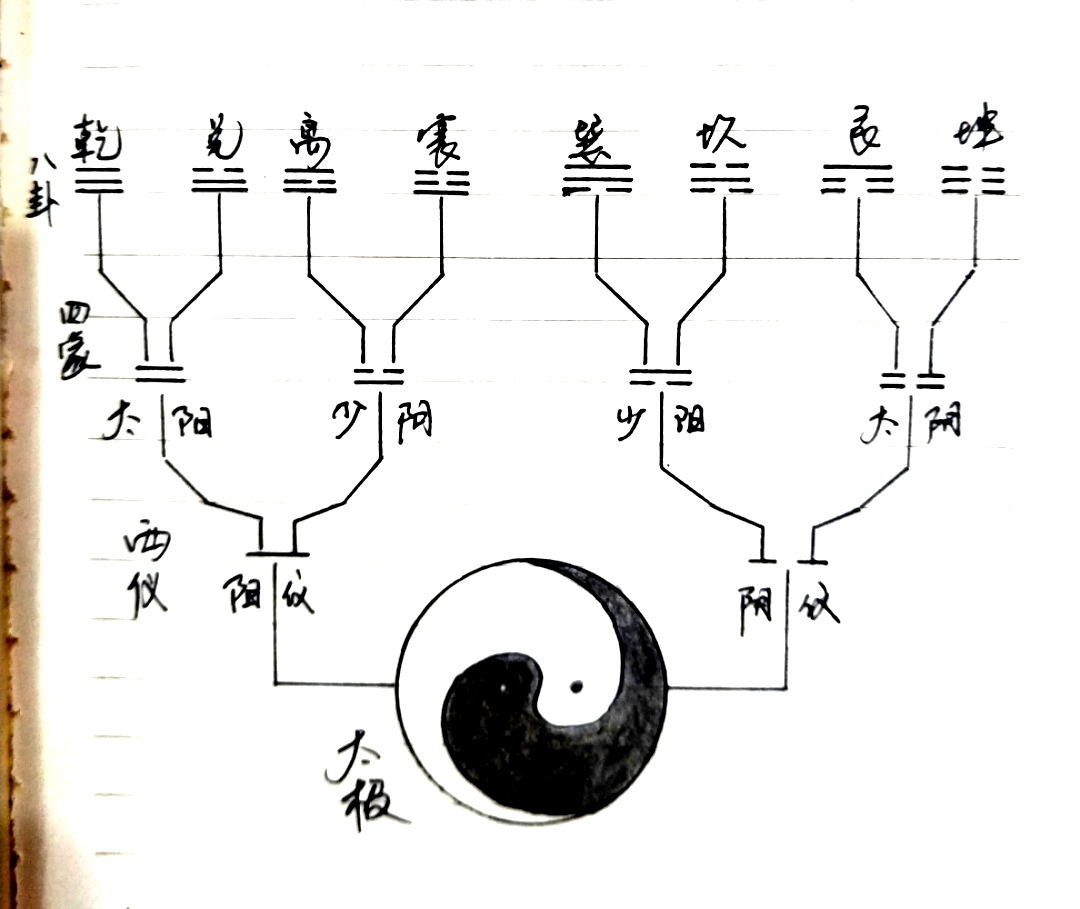 乾 兑 离 震 巽 坎 艮 坤
八卦
四象
太阳 少阴 少阳 太阴
两仪
阳仪 阴仪
太极